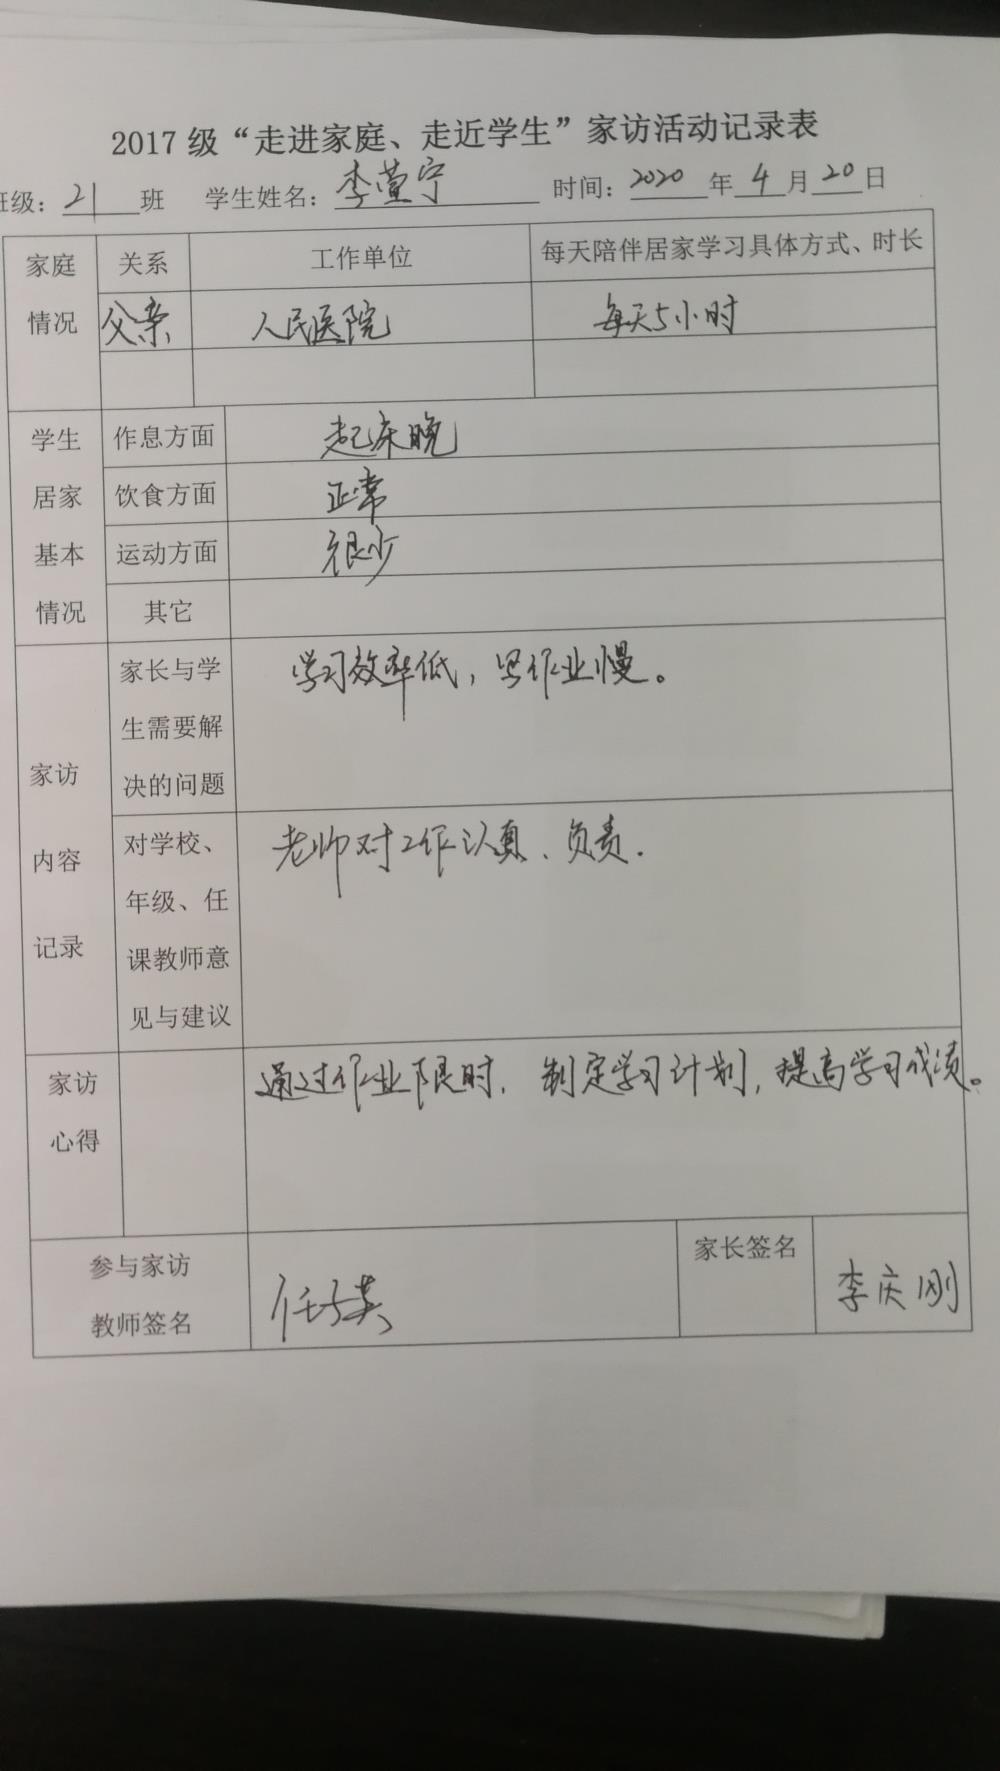 2017级“走进家庭、走近学生”家访活动记录表
班级：21班 学生姓名：李萱宁 时间：2020年4月20日
家庭情况 关系 工作单位 每天陪伴居家学习具体方式、时长
父亲 人民医院 每天5小时
学生居家基本情况 作息方面 起床晚
饮食方面 正常
运动方面 很少
其它
家访内容记录 家长与学生需要解决的问题 学习效率低，写作业慢。
对学校、年级、任课教师意见与建议 老师对工作认真、负责.
家访心得 通过作业限时，制定学习计划，提高学习成绩。
参与家访教师签名 家长签名 李庆刚